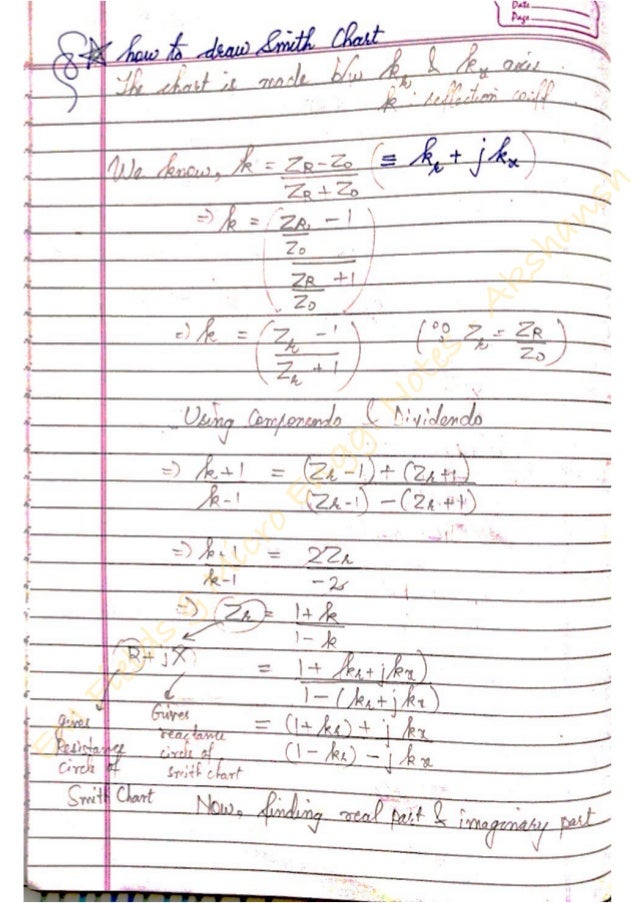 Date
Page
how to draw Smith Chart
The chart is made b/w kr & kx axis.
k : reflection coiff
We know, k = ZR - Z0 / ZR + Z0 (≡ kr + j kx)
⇒ k = (ZR/Z0 - 1 / ZR/Z0 + 1)
⇒ k = (Zr - 1 / Zr + 1) (∵ Zr = ZR/Z0)
Using Componendo & Dividendo
⇒ k+1 / k-1 = (Zr-1) + (Zr+1) / (Zr-1) - (Zr+1)
⇒ k+1 / k-1 = 2Zr / -2
⇒ Zr = 1+k / 1-k
R + jX = 1 + (kr + jkx) / 1 - (kr + jkx)
= (1+kr) + j kx / (1-kr) - j kx
gives Resistance circle of Smith Chart
Gives reactance circle of smith chart
Now, finding real part & imaginary part
Notes Akshansh